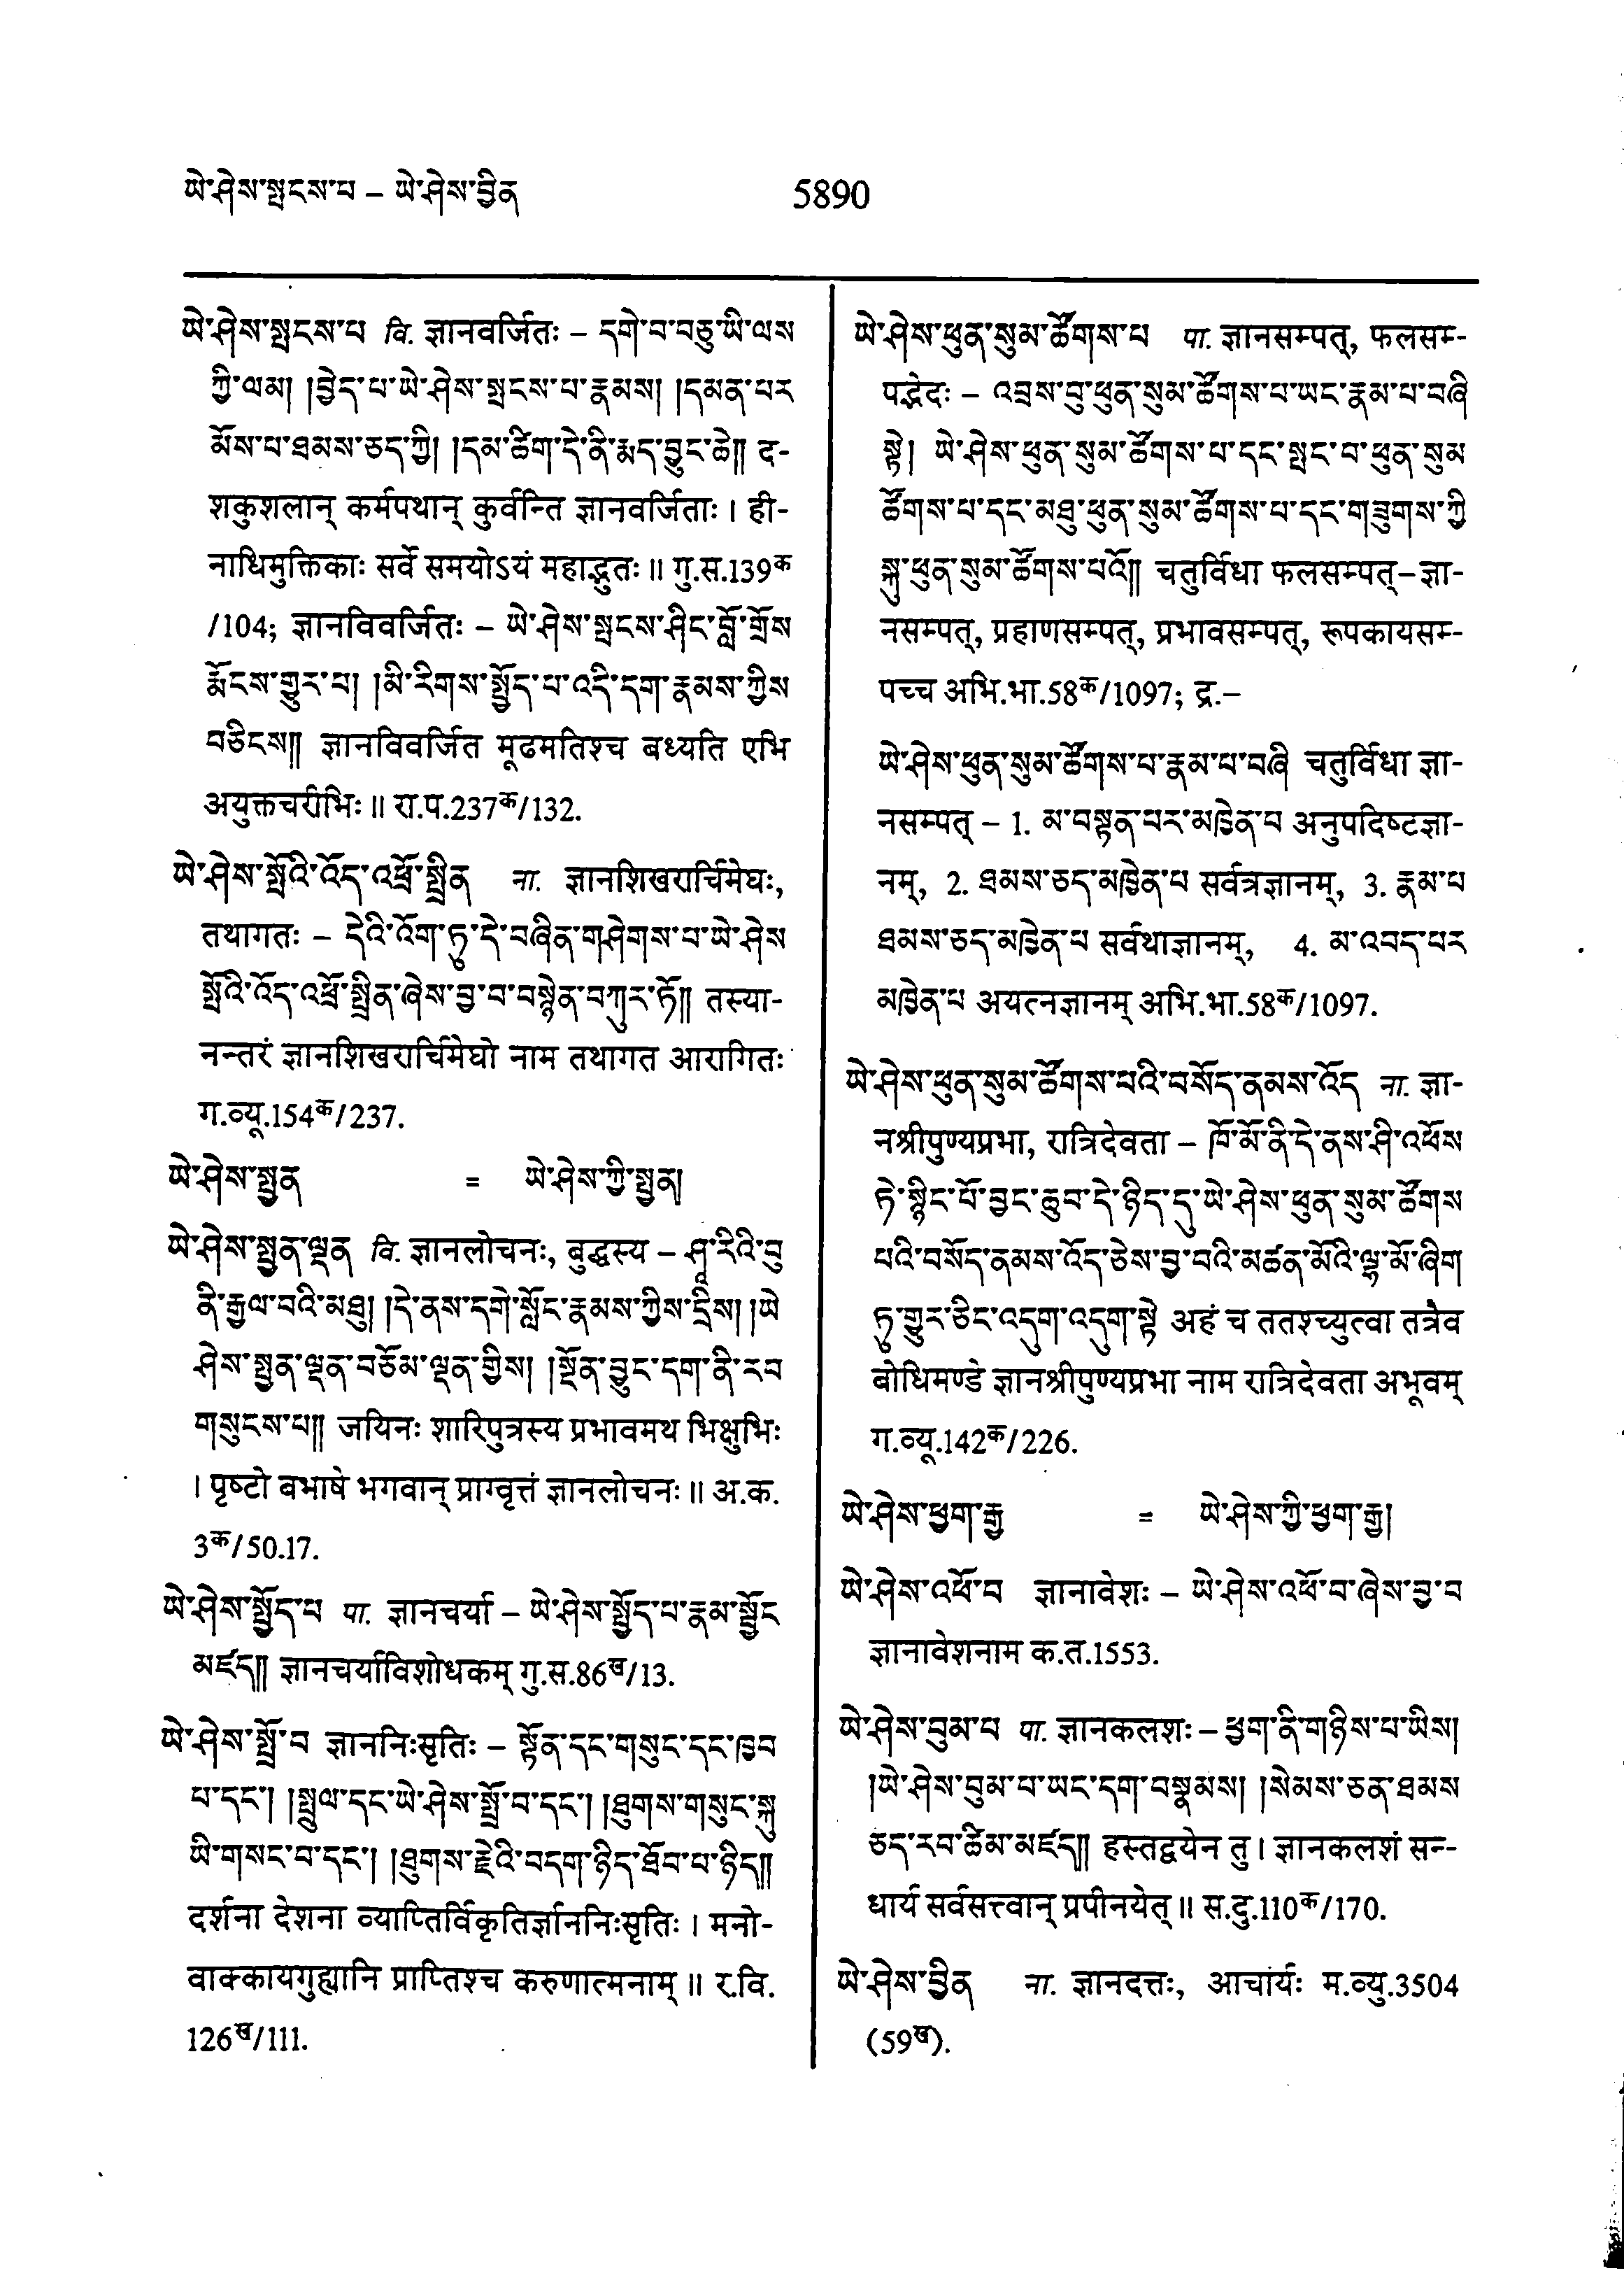 ཡེ་ཤེས་སྤངས་པ – ཡེ་ཤེས་བྱིན
5890
ཡེ་ཤེས་སྤངས་པ वि. ज्ञानवर्जितः – དགེ་བ་བཅུ་ཡི་ལས
ཀྱི་ལམ། །བྱེད་པ་ཡེ་ཤེས་སྤངས་པ་རྣམས། །དམན་པར
མོས་པ་ཐམས་ཅད་ཀྱི། །དམ་ཚིག་དེ་ནི་རྨད་བྱུང་ཆེ༎ द-
शकुशलान् कर्मपथान् कुर्वन्ति ज्ञानवर्जिताः । ही-
नाधिमुक्तिकाः सर्वे समयोऽयं महाद्भुतः ॥ गु.स.139क
/104; ज्ञानविवर्जितः – ཡེ་ཤེས་སྤངས་ཤིང་བློ་གྲོས
རྨོངས་གྱུར་པ། །མི་རིགས་སྤྱོད་པ་འདི་དག་རྣམས་ཀྱིས
བཅིངས༎ ज्ञानविवर्जित मूढमतिश्च बध्यति एभि
अयुक्तचरीभिः ॥ रा.प.237क/132.
ཡེ་ཤེས་སྤོའི་འོད་འཕྲོ་སྤྲིན ना. ज्ञानशिखरार्चिमेघः,
तथागतः – དེའི་འོག་ཏུ་དེ་བཞིན་གཤེགས་པ་ཡེ་ཤེས
སྤོའི་འོད་འཕྲོ་སྤྲིན་ཞེས་བྱ་བ་བསྙེན་བཀུར་ཏོ༎ तस्या-
नन्तरं ज्ञानशिखरार्चिमेघो नाम तथागत आरागितः
ग.व्यू.154क/237.
ཡེ་ཤེས་སྤྱན = ཡེ་ཤེས་ཀྱི་སྤྱན།
ཡེ་ཤེས་སྤྱན་ལྡན वि. ज्ञानलोचनः, बुद्धस्य – ཤཱ་རིའི་བུ
ནི་རྒྱལ་བའི་མཐུ། །དེ་ནས་དགེ་སློང་རྣམས་ཀྱིས་དྲིས། །ཡེ
ཤེས་སྤྱན་ལྡན་བཅོམ་ལྡན་གྱིས། །སྔོན་བྱུང་དག་ནི་རབ
གསུངས་པ༎ जयिनः शारिपुत्रस्य प्रभावमथ भिक्षुभिः
। पृष्टो बभाषे भगवान् प्राग्वृत्तं ज्ञानलोचनः ॥ अ.क.
3क/50.17.
ཡེ་ཤེས་སྤྱོད་པ पा. ज्ञानचर्या – ཡེ་ཤེས་སྤྱོད་པ་རྣམ་སྦྱོང
མཛད༎ ज्ञानचर्याविशोधकम् गु.स.86ख/13.
ཡེ་ཤེས་སྤྲོ་བ ज्ञाननिःसृतिः – སྟོན་དང་གསུང་དང་ཁྱབ
པ་དང་། །སྤྲུལ་དང་ཡེ་ཤེས་སྤྲོ་བ་དང་། །ཐུགས་གསུང་སྐུ
ཡི་གསང་བ་དང་། །ཐུགས་རྗེའི་བདག་ཉིད་ཐོབ་པ་ཉིད༎
दर्शना देशना व्याप्तिर्विकृतिर्ज्ञाननिःसृतिः । मनो-
वाक्कायगुह्यानि प्राप्तिश्च करुणात्मनाम् ॥ र.वि.
126ख/111.
ཡེ་ཤེས་ཕུན་སུམ་ཚོགས་པ पा. ज्ञानसम्पत्, फलसम्-
पद्भेदः – འབྲས་བུ་ཕུན་སུམ་ཚོགས་པ་ཡང་རྣམ་པ་བཞི
སྟེ། ཡེ་ཤེས་ཕུན་སུམ་ཚོགས་པ་དང་སྤང་བ་ཕུན་སུམ
ཚོགས་པ་དང་མཐུ་ཕུན་སུམ་ཚོགས་པ་དང་གཟུགས་ཀྱི
སྐུ་ཕུན་སུམ་ཚོགས་པའོ༎ चतुर्विधा फलसम्पत्–ज्ञा-
नसम्पत्, प्रहाणसम्पत्, प्रभावसम्पत्, रूपकायसम्-
पच्च अभि.भा.58क/1097; द्र.–
ཡེ་ཤེས་ཕུན་སུམ་ཚོགས་པ་རྣམ་པ་བཞི चतुर्विधा ज्ञा-
नसम्पत् – 1. མ་བསྟན་པར་མཁྱེན་པ अनुपदिष्टज्ञा-
नम्, 2. ཐམས་ཅད་མཁྱེན་པ सर्वत्रज्ञानम्, 3. རྣམ་པ
ཐམས་ཅད་མཁྱེན་པ सर्वथाज्ञानम्, 4. མ་འབད་པར
མཁྱེན་པ अयत्नज्ञानम् अभि.भा.58क/1097.
ཡེ་ཤེས་ཕུན་སུམ་ཚོགས་པའི་བསོད་ནམས་འོད ना. ज्ञा-
नश्रीपुण्यप्रभा, रात्रिदेवता – ཁོ་མོ་ནི་དེ་ནས་ཤི་འཕོས
ཏེ་སྙིང་པོ་བྱང་ཆུབ་དེ་ཉིད་དུ་ཡེ་ཤེས་ཕུན་སུམ་ཚོགས
པའི་བསོད་ནམས་འོད་ཅེས་བྱ་བའི་མཚན་མོའི་ལྷ་མོ་ཞིག
ཏུ་གྱུར་ཅིང་འདུག་འདུག་སྟེ अहं च ततश्च्युत्वा तत्रैव
बोधिमण्डे ज्ञानश्रीपुण्यप्रभा नाम रात्रिदेवता अभूवम्
ग.व्यू.142क/226.
ཡེ་ཤེས་ཕྱག་རྒྱ = ཡེ་ཤེས་ཀྱི་ཕྱག་རྒྱ།
ཡེ་ཤེས་འཕོ་བ ज्ञानावेशः – ཡེ་ཤེས་འཕོ་བ་ཞེས་བྱ་བ
ज्ञानावेशनाम क.त.1553.
ཡེ་ཤེས་བུམ་པ पा. ज्ञानकलशः – ཕྱག་ནི་གཉིས་པ་ཡིས།
།ཡེ་ཤེས་བུམ་པ་ཡང་དག་བསྣམས། །སེམས་ཅན་ཐམས
ཅད་རབ་ཚིམ་མཛད༎ हस्तद्वयेन तु । ज्ञानकलशं सन्-
धार्य सर्वसत्त्वान् प्रपीनयेत् ॥ स.दु.110क/170.
ཡེ་ཤེས་བྱིན ना. ज्ञानदत्तः, आचार्यः म.व्यु.3504
(59ख).